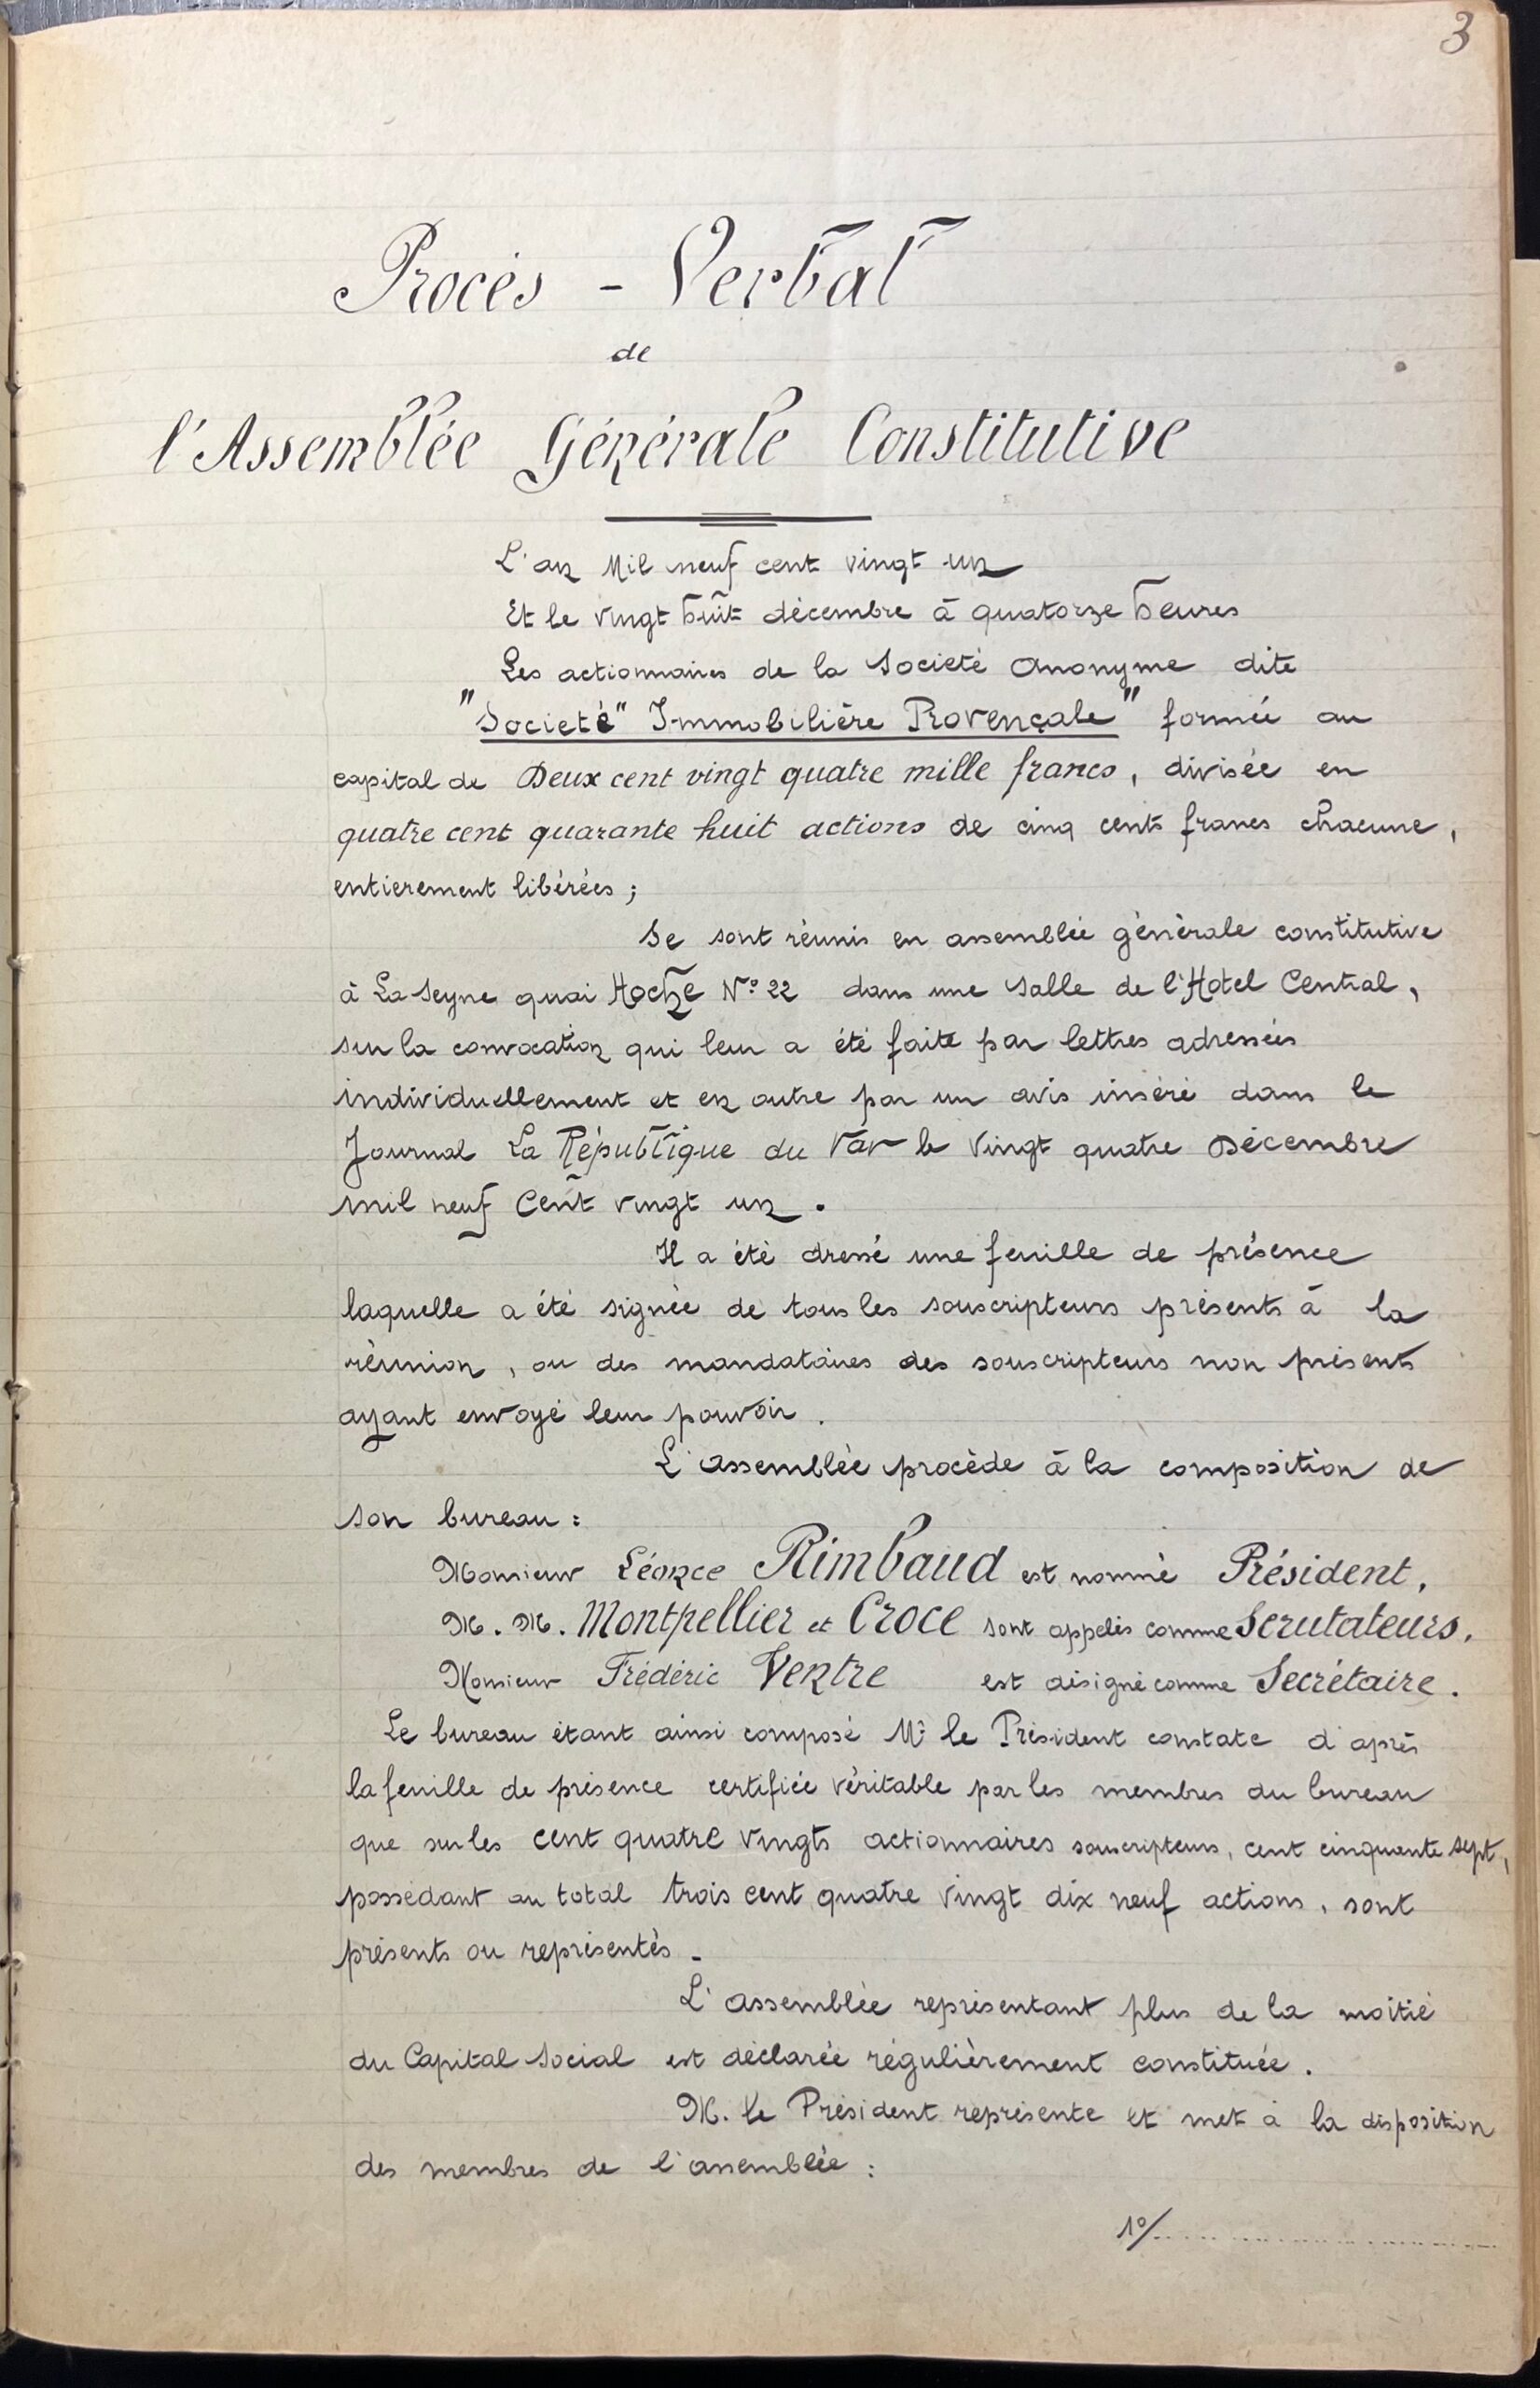 3
Procès - Verbal
de
l'Assemblée Générale Constitutive
L'an Mil neuf cent vingt un
Et le vingt huit décembre à quatorze heures
Les actionnaires de la Société Anonyme dite
"Societé" Immobilière Provençale" formée au
capital de Deux cent vingt quatre mille francs, divisée en
quatre cent quarante huit actions de cinq cents francs chacune,
entierement libérées;
Se sont réunis en assemblée générale constitutive
à La Seyne quai Hoche N° 22 dans une salle de l'Hotel Central,
sur la convocation qui leur a été faite par lettres adressées
individuellement et en outre par un avis inséré dans le
Journal La République du Var le Vingt quatre Décembre
mil neuf Cent vingt un.
Il a été dressé une feuille de présence
laquelle a été signée de tous les souscripteurs présents à la
réunion, ou des mandataires des souscripteurs non présents
ayant envoyé leur pouvoir.
L'assemblée procède à la composition de
son bureau:
Monsieur Léonce Rimbaud est nommé Président,
M. M. Montpellier et Croce sont appelés comme Scrutateurs,
Monsieur Frédéric Ventre est désigné comme Secrétaire.
Le bureau étant ainsi composé Mr le Président constate d'après
la feuille de présence certifiée véritable par les membres du bureau
que sur les cent quatre vingts actionnaires souscripteurs, cent cinquante sept,
possédant au total trois cent quatre vingt dix neuf actions, sont
présents ou représentés -
L'assemblée représentant plus de la moitié
du Capital Social est déclarée régulièrement constituée.
M. le Président représente et met à la disposition
des membres de l'assemblée:
1°/..............................